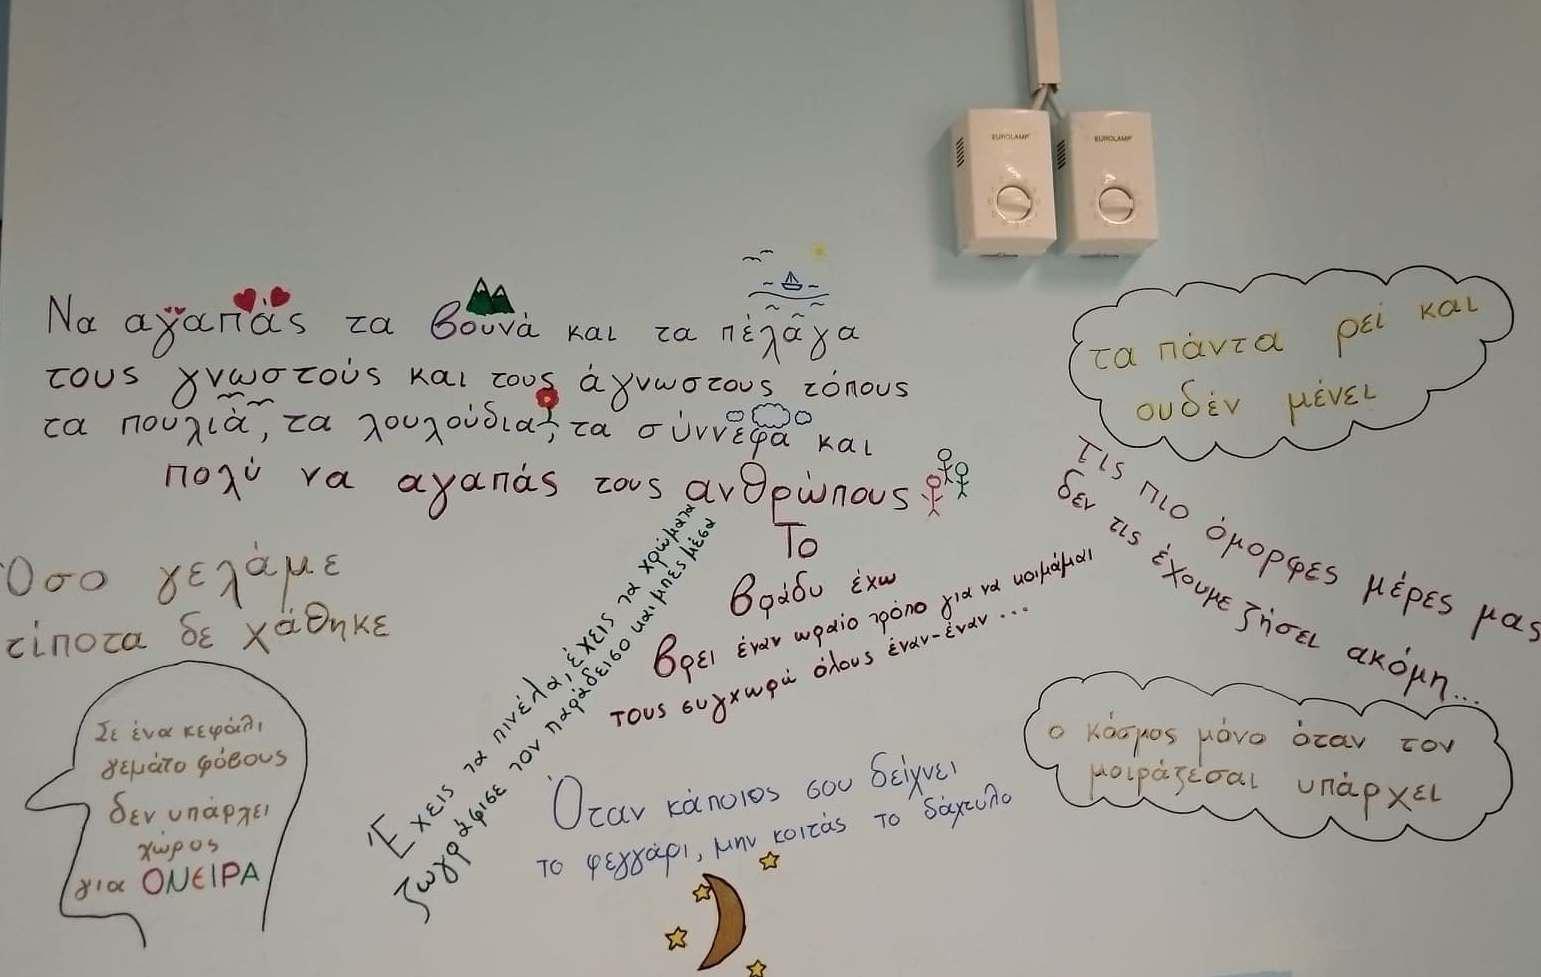 EUROLAMP
EUROLAMP
Να αγαπάς τα βουνά και τα πέλαγα
τους γνωστούς και τους άγνωστους τόπους
τα πουλιά, τα λουλούδια, τα σύννεφα και
πολύ να αγαπάς τους ανθρώπους
τα πάντα ρεί και
ουδέν μένει
Τις πιο όμορφες μέρες μας
δεν τις έχουμε ζήσει ακόμη...
Όσο γελάμε
τίποτα δε χάθηκε
Το
βράδυ έχω
βρει έναν ωραίο τρόπο για να κοιμάμαι
τους συγχωρώ όλους έναν-έναν...
Έχεις τα πινέλα, έχεις τα χρώματα
ζωγράφισε τον παράδεισο και μπες μέσα
Σε ένα κεφάλι
γεμάτο φόβους
δεν υπάρχει
χώρος
για ΟΝΕΙΡΑ
Όταν κάποιος σου δείχνει
το φεγγάρι, μην κοιτάς το δάχτυλο
ο κόσμος μόνο όταν τον
μοιράζεσαι υπάρχει